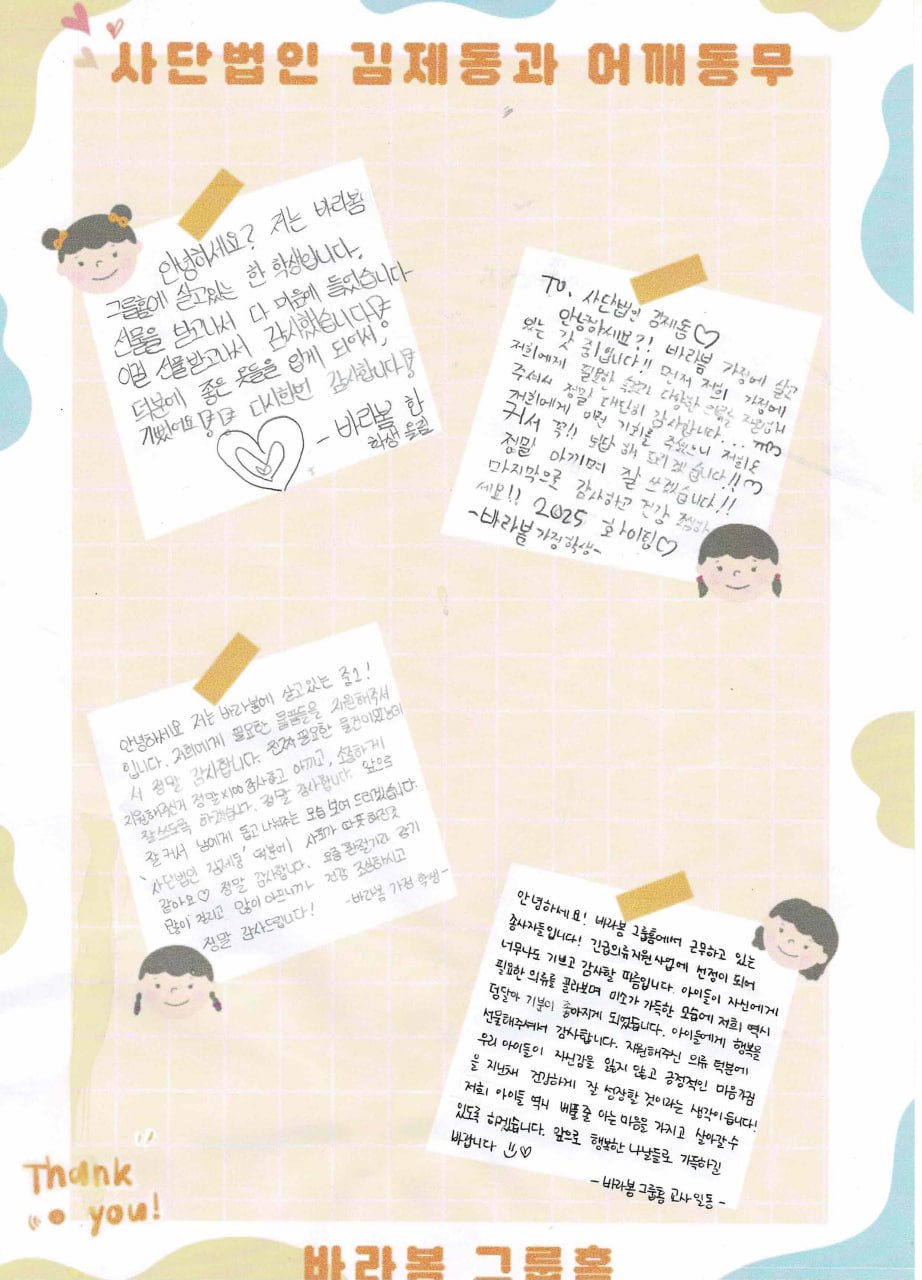 사단법인 김제동과 어깨동무
안녕하세요? 저는 바라봄
그룹홈에 살고있는 한 학생입니다.
선물을 받고나서 다 마음에 들었습니다
이걸 선물받고나서 감사했습니다!
덕분에 좋은 옷들을 입게 되어서,
기뻤어요!! 다시한번 감사합니다!
- 바라봄 한
학생 올림
TO. 사단법인 김제동♡
안녕하세요?! 바라봄 가정에 살고
있는 갓 중1입니다!! 먼저 저희 가정에
저희에게 필요한 다양한
주셔서 정말 대단히 감사합니다... ㅠㅠ
저희에게 이런 기회를 주셨으니 저희도
커서 꼭!! 보답 해 드리겠습니다!!♡
정말 아끼며 잘 쓰겠습니다!!
마지막으로 감사하고 건강
세요!! 2025 화이팅♡
-바라봄 가정학생-
안녕하세요 저는 바라봄에 살고있는 중2!
입니다. 저희에게 필요한 물품들을 지원해주셔
서 정말 감사합니다. 진짜 필요한 물건이었는데
지원해주신거 정말x100 감사하고 아끼고, 소중하게
잘 쓰도록 하겠습니다. 정말 감사합니다. 앞으로
잘 커서 남에게 돕고 나눠주는 모습 보여 드리겠습니다.
'사단법인 김제동' 덕분에 사회가 따뜻해진것
같아요♡ 정말 감사합니다. 요즘 환절기라 감기
많이 걸리고 많이 아프니까 건강 조심하시고
정말 감사드립니다! -바라봄 가정 학생-
안녕하세요! 바라봄 그룹홈에서 근무하고 있는
종사자들입니다! 긴급의류지원사업에 선정이 되어
너무나도 기쁘고 감사할 따름입니다. 아이들이 자신에게
필요한 의류를 골라보며 미소가 가득한 모습에 저희 역시
덩달아 기분이 좋아지게 되었습니다. 아이들에게 행복을
선물해주셔서 감사합니다. 지원해주신 의류 덕분에
우리 아이들이 자신감을 잃지 않고 긍정적인 마음가짐
을 지닌채 건강하게 잘 성장할 것이라는 생각이 듭니다!
저희 아이들 역시 베풀 줄 아는 마음을 가지고 살아갈 수
있도록 하겠습니다. 앞으로 행복한 나날들로 가득하길
바랍니다 :)♡
- 바라봄 그룹홈 교사 일동 -
Thank
you!
바라봄 그룹홈